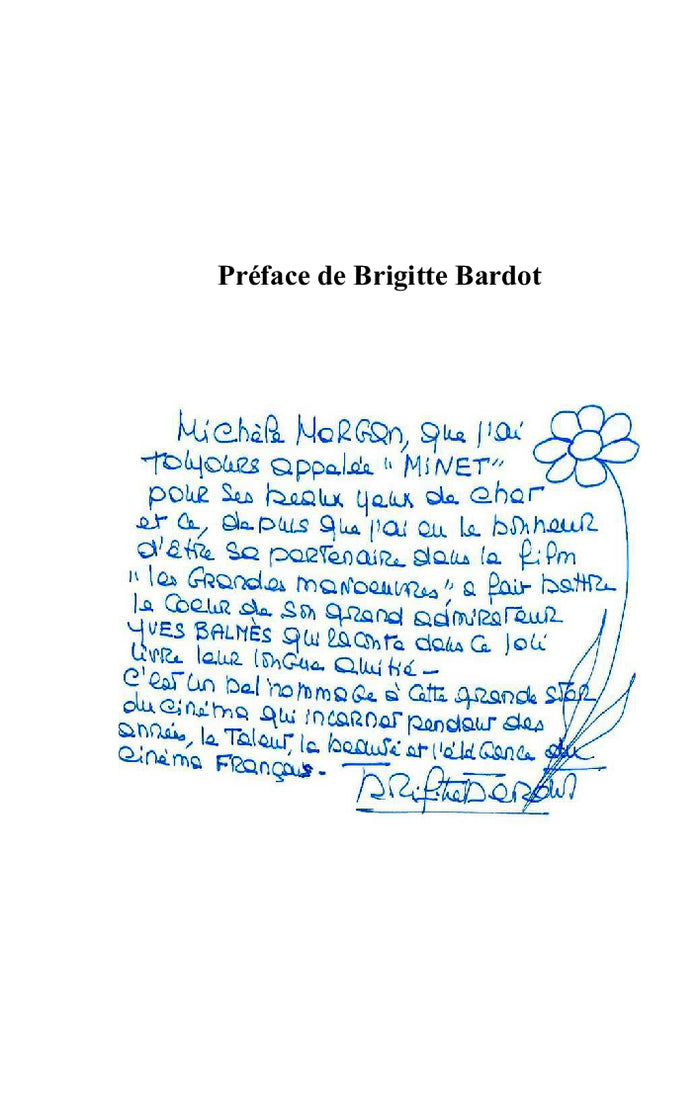 Préface de Brigitte Bardot
Michèle MORGAN, que j'ai
TOUJOURS appelée "MINET"
pour ses beaux yeux de chat
et ce, depuis que j'ai eu le bonheur
d'être sa partenaire dans le film
"les GRANDES MANOEUVRES" a fait battre
le coeur de son grand admirateur
YVES BALMÈS qui raconte dans ce joli
livre leur longue amitié -
C'est un bel hommage à cette grande STAR
du cinéma qui incarnat pendant des
années, le Talent, la beauté et l'élégance du
cinéma FRANÇAIS -
BRIGITTE BARDOT